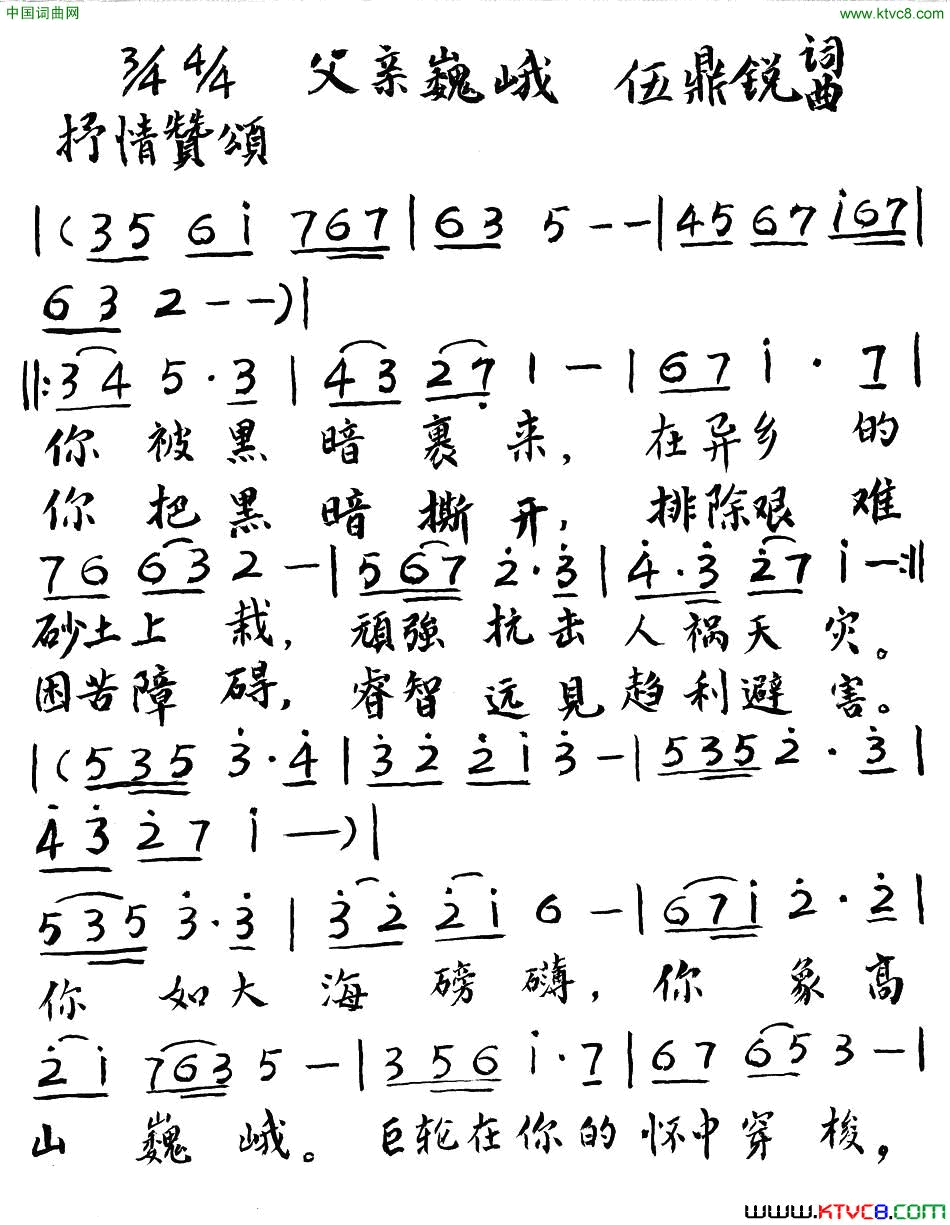 中国词曲网 www.ktvc8.com
3/4 4/4 父亲巍峨 伍鼎銳 词曲
抒情贊頌
|(35 6i 767|63 5--|45 67 i67|
63 2--)|
||:34 5·3|43 27̣ 1-|67 i·7|
你被黑暗裹来,在异乡的
你把黑暗撕开,排除艰难
76 63 2-|567 2̇·3̇|4̇·3̇ 2̇7 i-:||
砂土上栽,頑強抗击人祸天灾。
困苦障碍,睿智远見趋利避害。
|(535 3̇·4̇|3̇2̇ 2̇i 3̇-|535 2̇·3̇|
4̇3̇ 2̇7 i-)|
535 3̇·3̇|3̇2̇ 2̇i 6-|67i 2̇·2̇|
你如大海磅礴,你象高
2̇i 763 5-|356 i·7|67 65 3-|
山巍峨。巨轮在你的怀中穿梭,
www.KTVC8.com